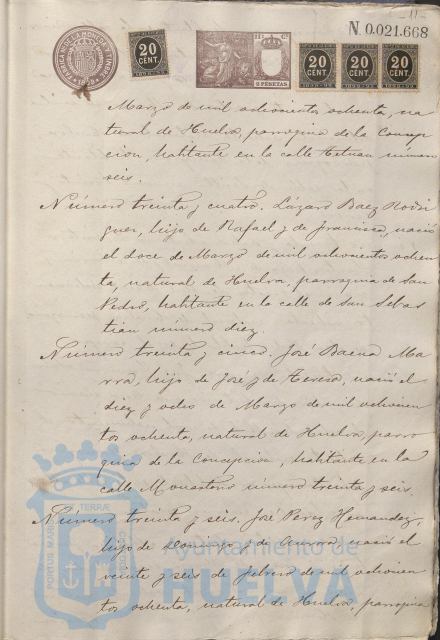 11
N. 0.021.668
FABRICA DE LA MONEDA Y TIMBRE
1899
20
CENT.
2 PESETAS
20
CENT.
20
CENT.
20
CENT.
Marzo de mil ochocientos ochenta, na
tural de Huelva, parroquia de la Concep
cion, habitante en la calle Tetuan número
seis.
Número treinta y cuatro. Lázaro Baez Rodri
guez, hijo de Rafael y de Francisca, nació
el doce de Marzo de mil ochocientos ochen
ta, natural de Huelva, parroquia de San
Pedro, habitante en la calle de San Sebas
tián número diez.
Número treinta y cinco. José Baena Ma
rra, hijo de José y de Teresa, nació el
diez y ocho de Marzo de mil ochocien
tos ochenta, natural de Huelva, parro
quia de la Concepcion, habitante en la
calle Monasterio número treinta y seis.
Número treinta y seis. José Perez Hernandez,
hijo de Domingo y de nació el
veinte y seis de febrero de mil ochocien
tos ochenta, natural de Huelva, parroquia
PORTUS MARIS
TERRAE
CUSTODIA
Ayuntamiento de
HUELVA